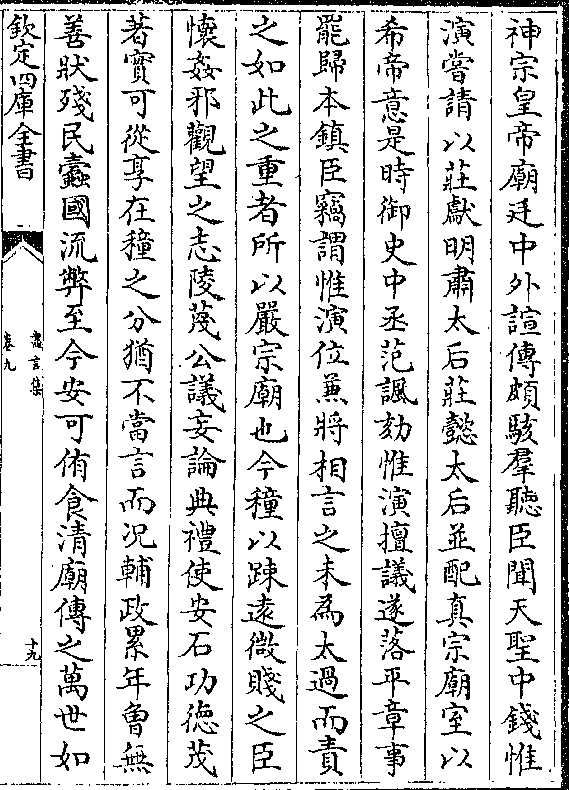 神宗皇帝廟廷中外諠傳頗駭羣聽臣聞天聖中錢惟
演嘗請以莊獻明肅太后莊懿太后並配真宗廟室以
希帝意是時御史中丞范諷劾惟演擅議遂落平章事
罷歸本鎮臣竊謂惟演位兼將相言之未為太過而責
之如此之重者所以嚴宗廟也今穜以踈逺微賤之臣
懷姦邪觀望之志陵蔑公議妄論典禮使安石功徳茂
著實可從享在穜之分猶不當言而况輔政累年曾無
善狀殘民蠧國流弊至今安可侑食清廟傳之萬世如
欽定四庫全書
盡言集
卷九
十九